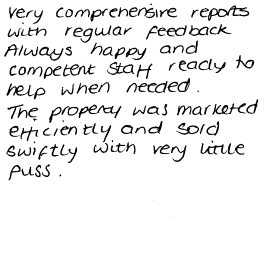 Very comprehensive reports
with regular feedback
Always happy and
competent staff ready to
help when needed.
The property was marketed
efficiently and sold
swiftly with very little
puss.